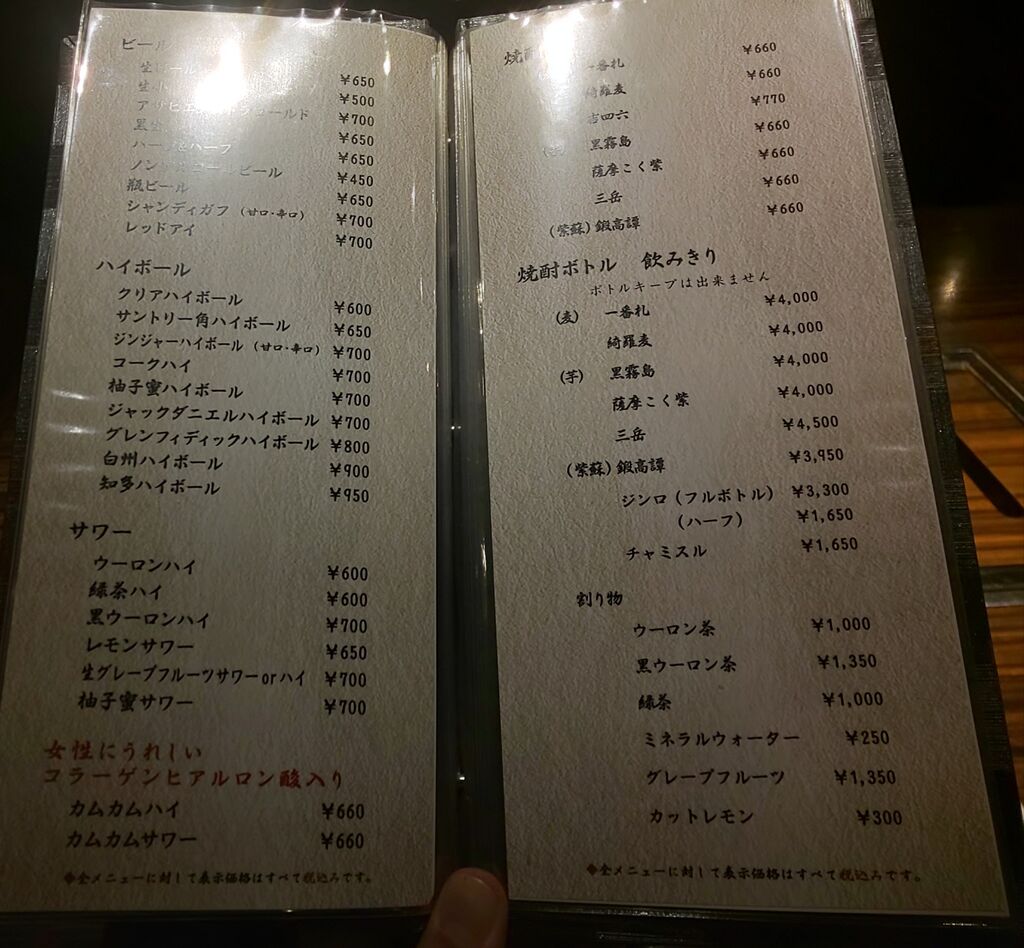 ビール
生ビール ¥650
生 ¥500
アサヒエ ールド ¥700
黒生 ¥650
ハーフ&ハーフ ¥650
ノンアルコールビール ¥450
瓶ビール ¥650
シャンディガフ (甘口・辛口) ¥700
レッドアイ ¥700
ハイボール
クリアハイボール ¥600
サントリー角ハイボール ¥650
ジンジャーハイボール (甘口・辛口) ¥700
コークハイ ¥700
柚子蜜ハイボール ¥700
ジャックダニエルハイボール ¥700
グレンフィディックハイボール ¥800
白州ハイボール ¥900
知多ハイボール ¥950
サワー
ウーロンハイ ¥600
緑茶ハイ ¥600
黒ウーロンハイ ¥700
レモンサワー ¥650
生グレープフルーツサワーorハイ ¥700
柚子蜜サワー ¥700
女性にうれしい
コラーゲンヒアルロン酸入り
カムカムハイ ¥660
カムカムサワー ¥660
◆全メニューに対して表示価格はすべて税込みです。
焼酎
一番札 ¥660
綺羅麦 ¥660
吉四六 ¥770
黒霧島 ¥660
薩摩こく紫 ¥660
三岳 ¥660
(紫蘇) 鍛高譚 ¥660
焼酎ボトル 飲みきり
ボトルキープは出来ません
(麦) 一番札 ¥4,000
綺羅麦 ¥4,000
(芋) 黒霧島 ¥4,000
薩摩こく紫 ¥4,000
三岳 ¥4,500
(紫蘇) 鍛高譚 ¥3,950
ジンロ (フルボトル) ¥3,300
(ハーフ) ¥1,650
チャミスル ¥1,650
割り物
ウーロン茶 ¥1,000
黒ウーロン茶 ¥1,350
緑茶 ¥1,000
ミネラルウォーター ¥250
グレープフルーツ ¥1,350
カットレモン ¥300
◆全メニューに対して表示価格はすべて税込みです。